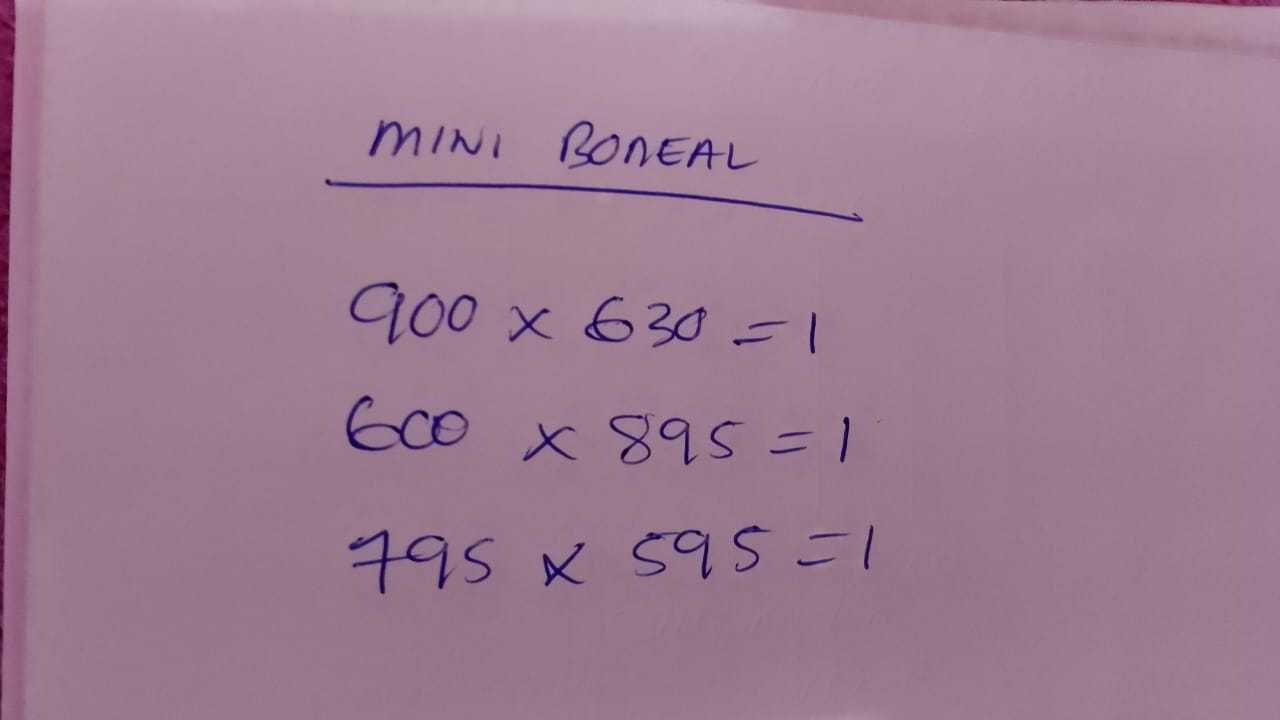 MINI BOREAL
900 x 630 = 1
600 x 895 = 1
795 x 595 = 1